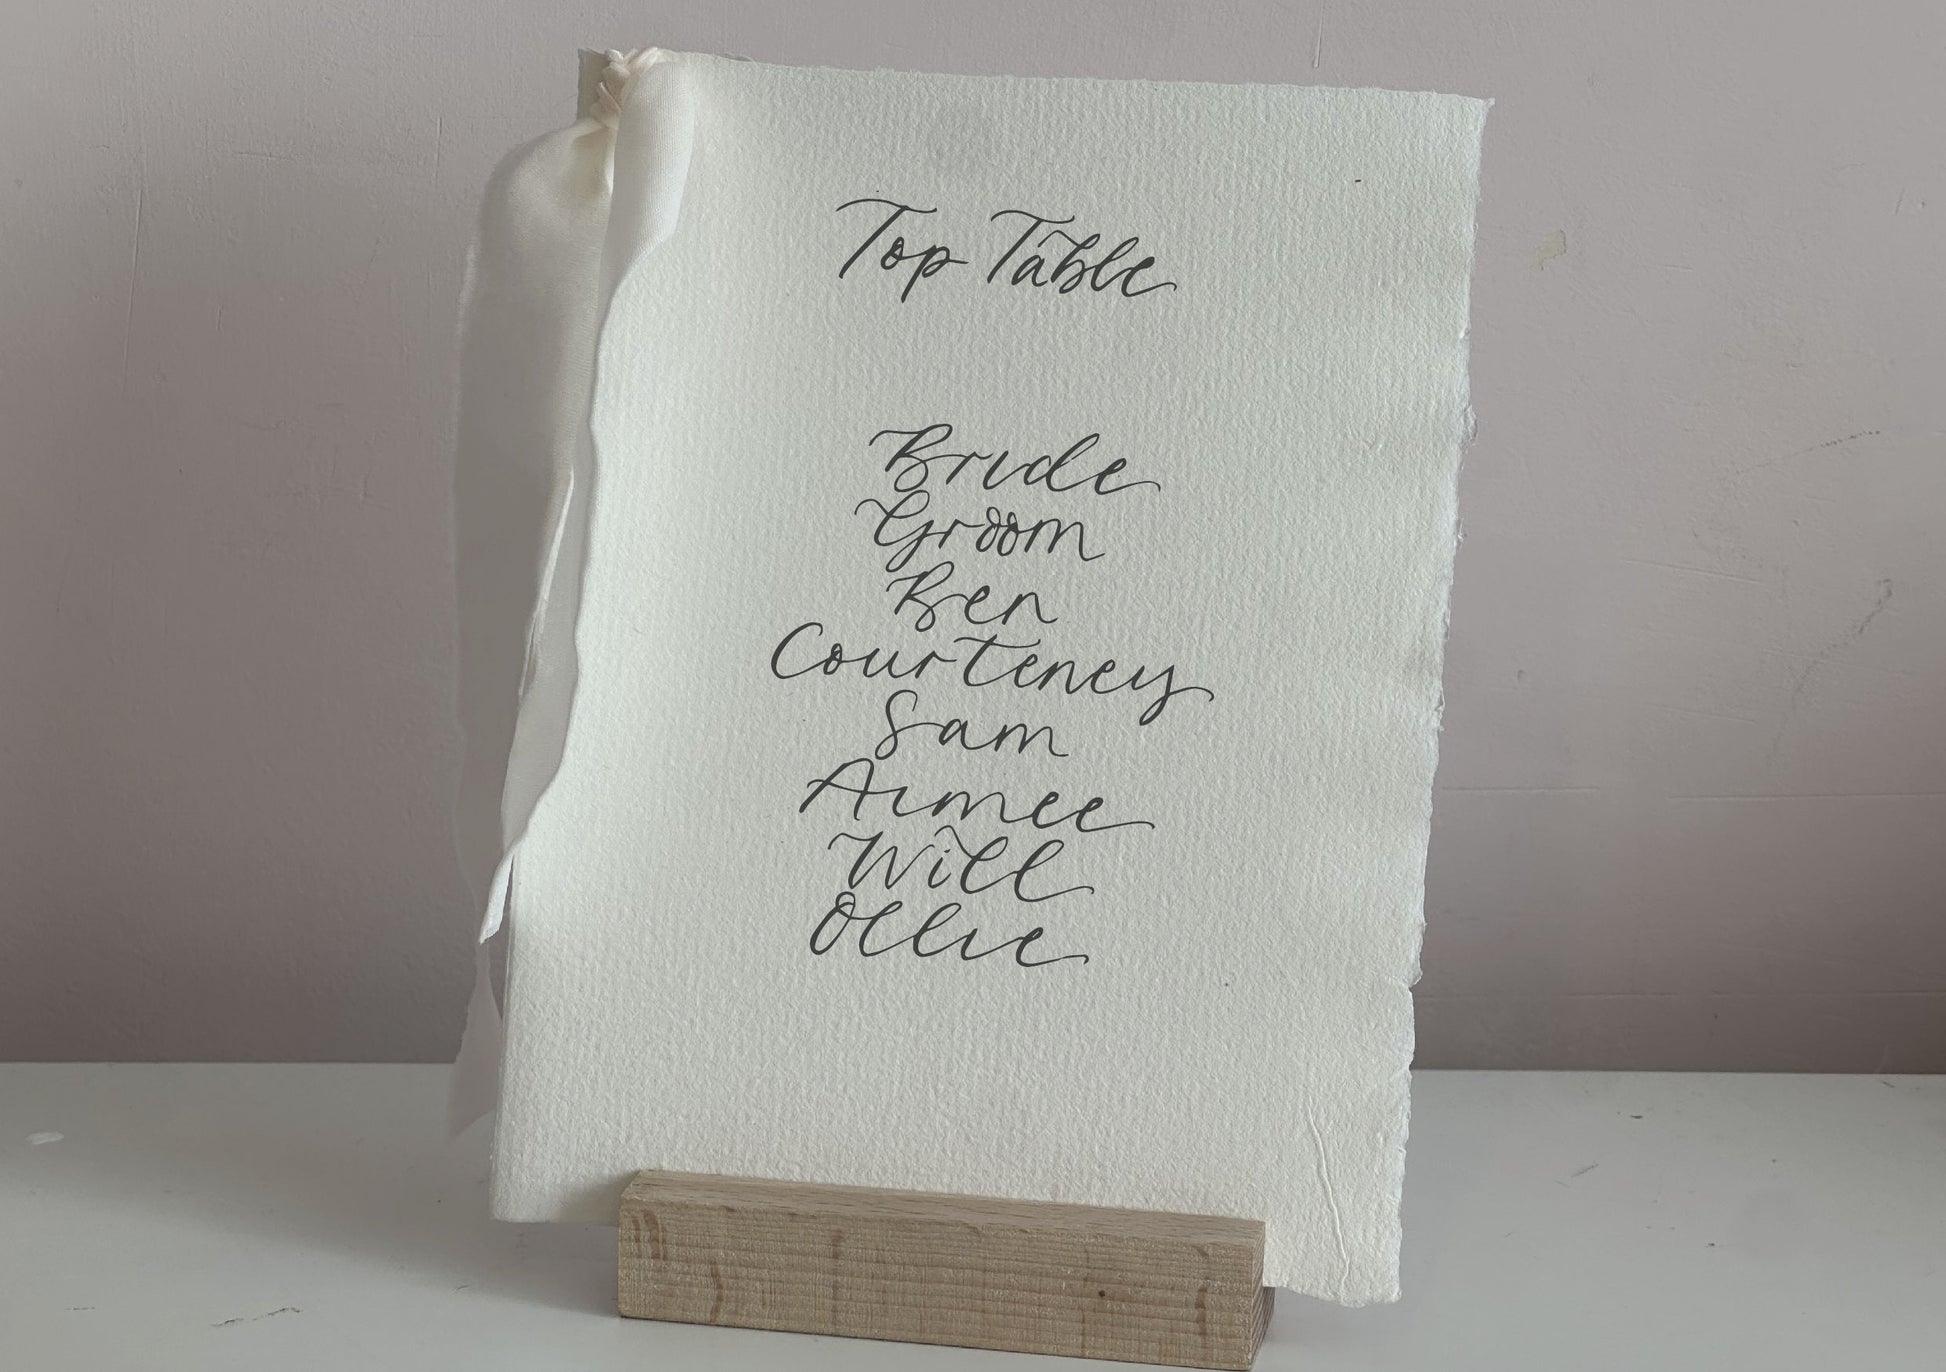 Top Table
Bride
Groom
Ben
Courteney
Sam
Aimee
Will
Ollie